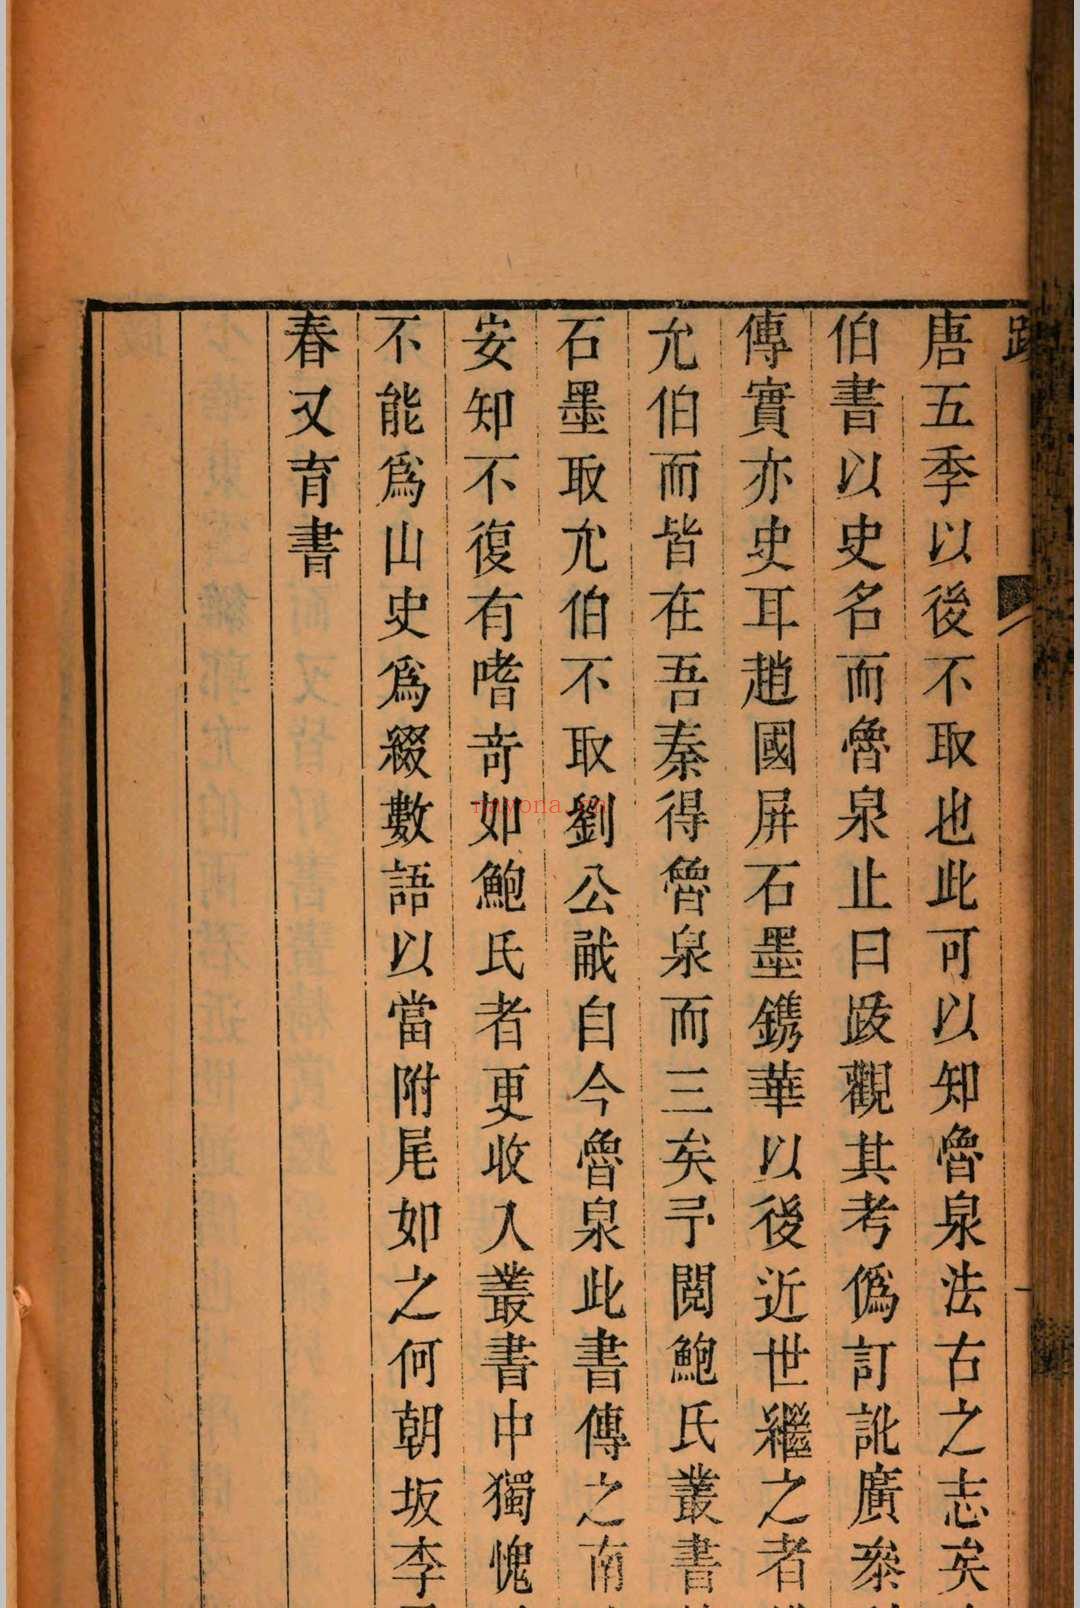 唐五季以後不取也此可以知魯泉法古之志矣
伯書以史名而魯泉止曰跋觀其考僞訂訛廣
傳實亦史耳趙國屏石墨鐫華以後近世繼之者
允伯而皆在吾秦得魯泉而三矣予閱鮑氏叢書
石墨取允伯不取劉公㦮自今魯泉此書傳之南
安知不復有嗜奇如鮑氏者更收入叢書中獨愧
不能爲山史爲綴數語以當附尾如之何朝坂李
春又育書